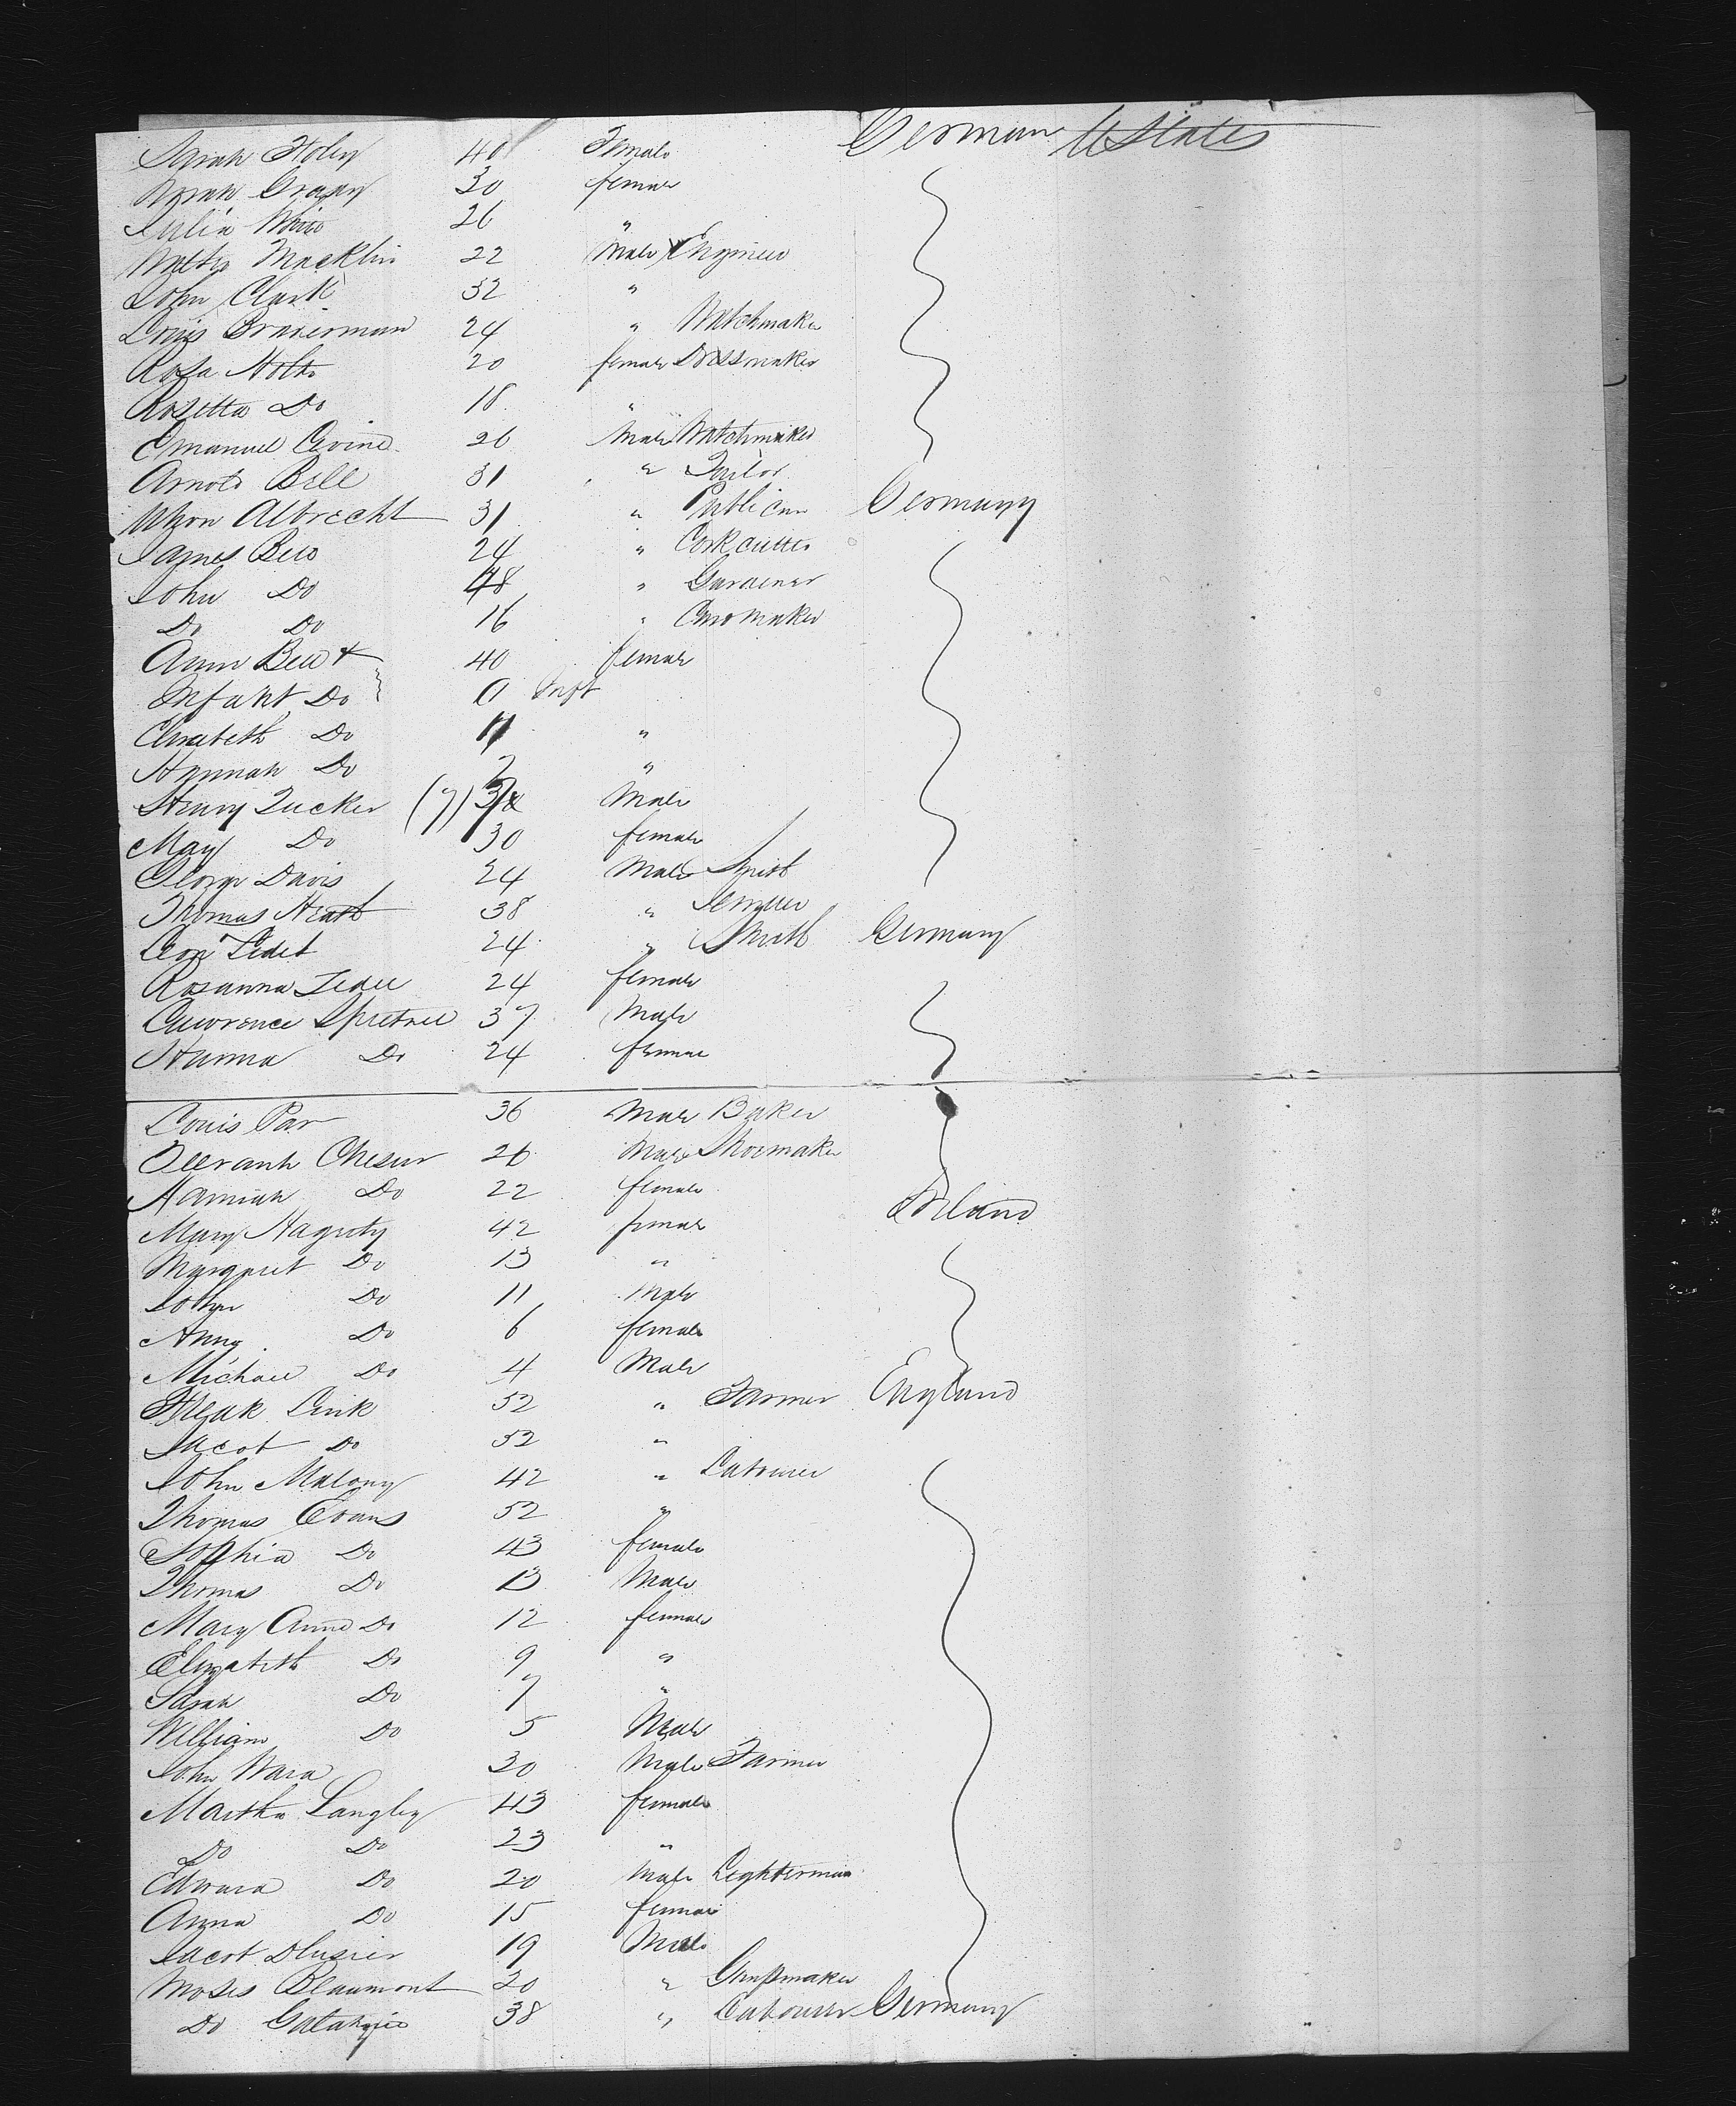 Sarah Foley 40 Female German UStates
Norah Grany 30 female
Julia White 26 "
Walter Macklin 22 Male Engineer
John Clark 32 "
Louis Braverman 24 " Watchmaker
Rosa Holts 20 female Dressmaker
Rosetta Do 18 "
Emanuel Levine 26 Male Watchmaker
Arnold Bell 31 " Tailor
Albrecht 31 " Publican Germany
James Bew 24 " Corkcutter
John Do 48 " Gardener
Do Do 16 "
Ann Bew + 40 female
Infant Do 0 Inft
Elizabeth Do "
Hannah Do 2 "
Henry Tucker (7) Male
May Do 30 female
George Davis 24 Male Smith
Thomas Heath 38 "
Leon 24 " Smith Germany
Rosanna 24 female
Lawrence 37 Male
Hanna Do 24 female
Louis Par 36 Male Baker
Cheser 26 Male Shoemaker
Do 22 female
Mary Hagerty 42 female Irland
Margaret Do 13 "
John Do 11 Male
Anny Do 6 female
Michael Do 4 Male
Link 52 " Farmer England
Jacob Do 52 "
John Malony 42 " Labourer
Thomas Evans 52 "
Sophia Do 43 female
Thomas Do 13 Male
Mary Anne Do 12 female
Elizabeth Do 9 "
Sarah Do 7 "
William Do 5 Male
John Ward 30 Male Farmer
Martha Langley 43 female
Do Do 23 "
Edward Do 20 Male Lighterman
Anna Do 15 female
Jacob 19 Male
Moses Beaumont 20 "
Do 38 " Labourer Germany